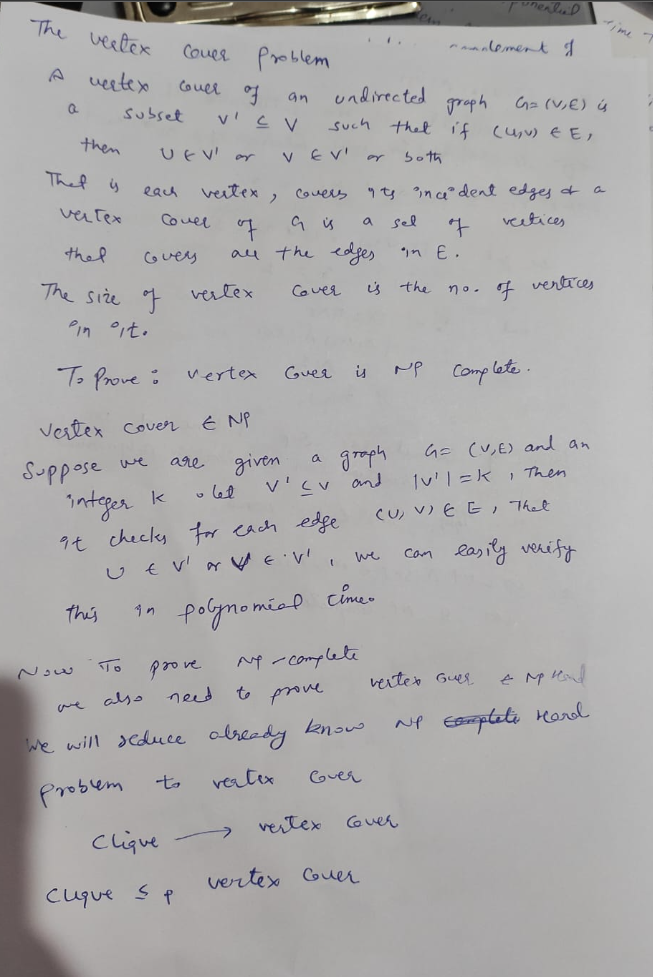 The vertex cover problem
A vertex cover of an undirected graph G=(V,E) is
a subset V' ⊆ V such that if (u,v) ∈ E,
then u ∈ V' or v ∈ V' or both
That is each vertex, covers its incident edges & a
vertex cover of G is a set of vertices
that covers all the edges in E.
The size of vertex cover is the no. of vertices
in it.
To Prove : vertex cover is NP Complete.
Vertex cover ∈ NP
Suppose we are given a graph G= (V,E) and an
integer K. let V' ⊆ V and |V'| = K, Then
it checks for each edge (U, V) ∈ E, That
U ∈ V' or V ∈ V', we can easily verify
this in polynomial time.
Now To prove NP-complete
we also need to prove vertex cover ∈ NP Hard
We will reduce already know NP complete Hard
problem to vertex cover
Clique → vertex cover
Clique ≤ p vertex cover